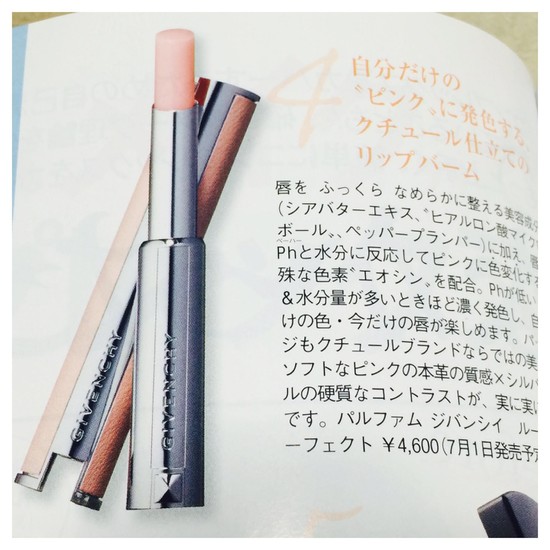 4
自分だけの
〝ピンク〟に発色する、
クチュール仕立ての
リップバーム
唇を ふっくら なめらかに整える美容成
(シアバターエキス、〝ヒアルロン酸マイク
ボール〟、ペッパープランパー)に加え、唇
ペーハー
Phと水分に反応してピンクに色変化する
殊な色素〝エオシン〟を配合。Phが低い
&水分量が多いときほど濃く発色し、自
けの色・今だけの唇が楽しめます。パ
ジもクチュールブランドならではの美
ソフトなピンクの本革の質感×シルバ
ルの硬質なコントラストが、実に実に
です。パルファム ジバンシイ ルー
ーフェクト ¥4,600(7月1日発売予定
GIVENCHY
GIVENCHY